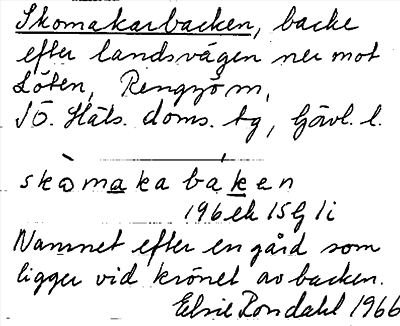 Skomakarbacken, backe
efter landsvägen ner mot
Löten, Rengsjö sn,
SÖ. Häls. doms. tg, Gävl. l.
skòmaka baken
196 ek 15 G 1i
Namnet efter en gård som
ligger vid krönet av backen.
Elsie Rondahl 1966